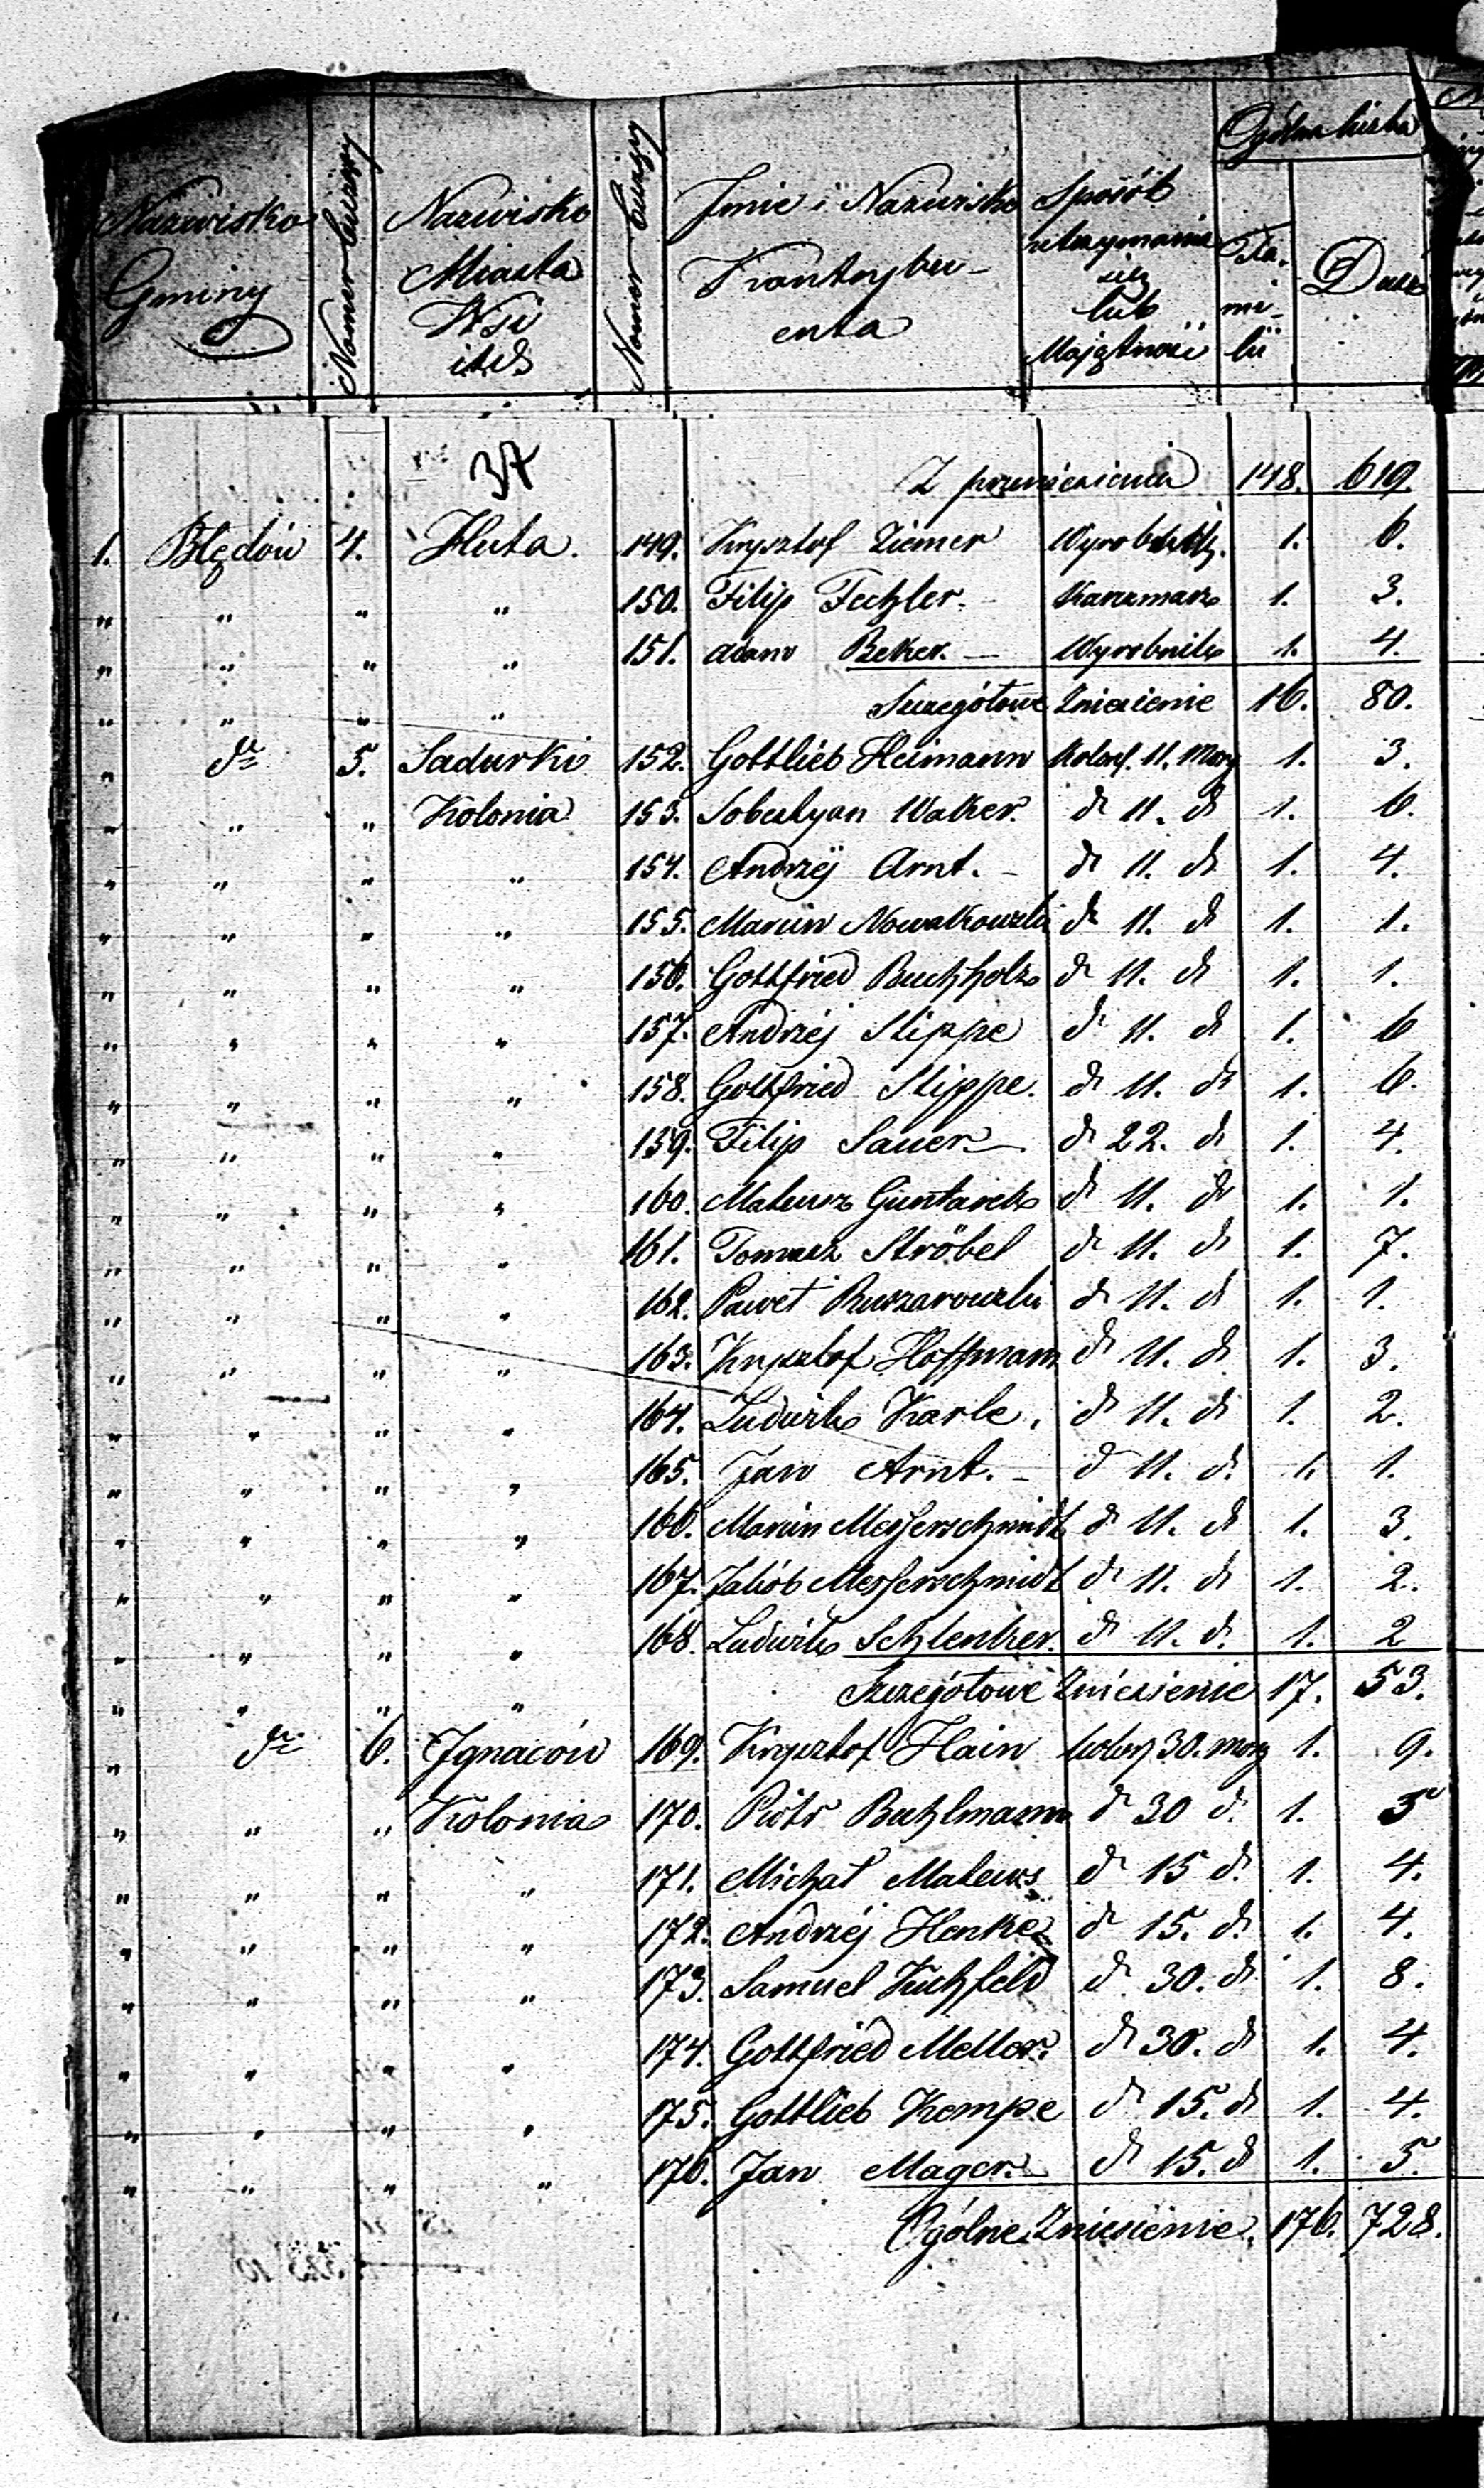 Nazwisko Gminy
Nomer bieżący
Nazwisko Miasta Wsi itd
Nomer bieżący
Jmie i Nazwisko Kontrybuenta
Sposób utrzymania się lub Majątność
Ogólna liczba
Familii
Dusz
37
Z przeniesienia 148. 619.
1. Błędów 4. Huta. 149. Krysztof Ziemer 1. 6.
" " " " 150. Filip Fechler. Karczmarz 1. 3.
" " " " 151. Adam Beker. Wyrobnik 1. 4.
" " " " Szczegółowe Zniesienie 16. 80.
" dto 5. Sadurki 152. Gottlieb Heimann 11. Morg 1. 3.
" " " Kolonia 153. Walker. d 11. d 1. 6.
" " " " 154. Andrzėj Arnt. d 11. d 1. 4.
" " " " 155. Marcin Nowakowski d 11. d 1. 1.
" " " " 156. Gottfried Buchholz d 11. d 1. 1.
" " " " 157. Andrzėj Slippe d 11. d 1. 6
" " " " 158. Gottfried Slippe. d 11. d 1. 6.
" " " " 159. Filip Sauer d 22. d 1. 4.
" " " " 160. Mateusz d 11. d 1. 1.
" " " " 161. Tomasz Ströbel d 11. d 1. 7.
" " " " 162. Paweł d 11. d 1. 1.
" " " " 163. Krysztof Hoffmann d 11. d 1. 3.
" " " " 164. Ludwik Karle. d 11. d 1. 2.
" " " " 165. Jan Arnt. d 11. d. 1. 1.
" " " " 166. Marcin Messerschmidt d 11. d 1. 3.
" " " " 167. Jakób Messerschmidt d 11. d 1. 2.
" " " " 168. Ludwik Schlenker. d 11. d. 1. 2
" " " " Szczegółowe Zniesienie 17. 53.
" dto 6. Jgnaców 169. Krysztof Hain 30. morg 1. 9.
" " " Kolonia 170. Piotr Buchlmann d 30 d. 1. 5
" " " " 171. Michał Mateus d 15 d. 1. 4.
" " " " 172. Andrzéj Henke d 15. d. 1. 4.
" " " " 173. Samuel Kuchfeld d 30. d 1. 8.
" " " " 174. Gottfried Meller. d 30. d 1. 4.
" " " " 175. Gottlieb Kempe d 15. d 1. 4.
" " " " 176. Jan Mager. d 15. d 1. 5.
Ogólne Zniesienie. 176. 728.